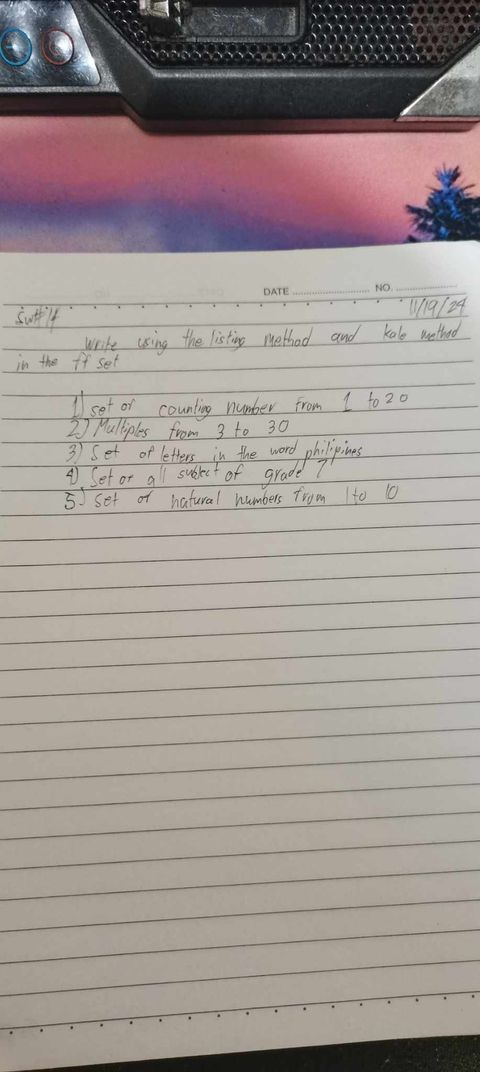 DATE ........................ NO. ..................
SW#14 11/19/24
Write using the listing method and kale method
in the ff set
1) set of counting number from 1 to 20
2) Multiples from 3 to 30
3) Set of letters in the word philipines
4) Set of all subject of grade 7
5) set of natural numbers from 1 to 10